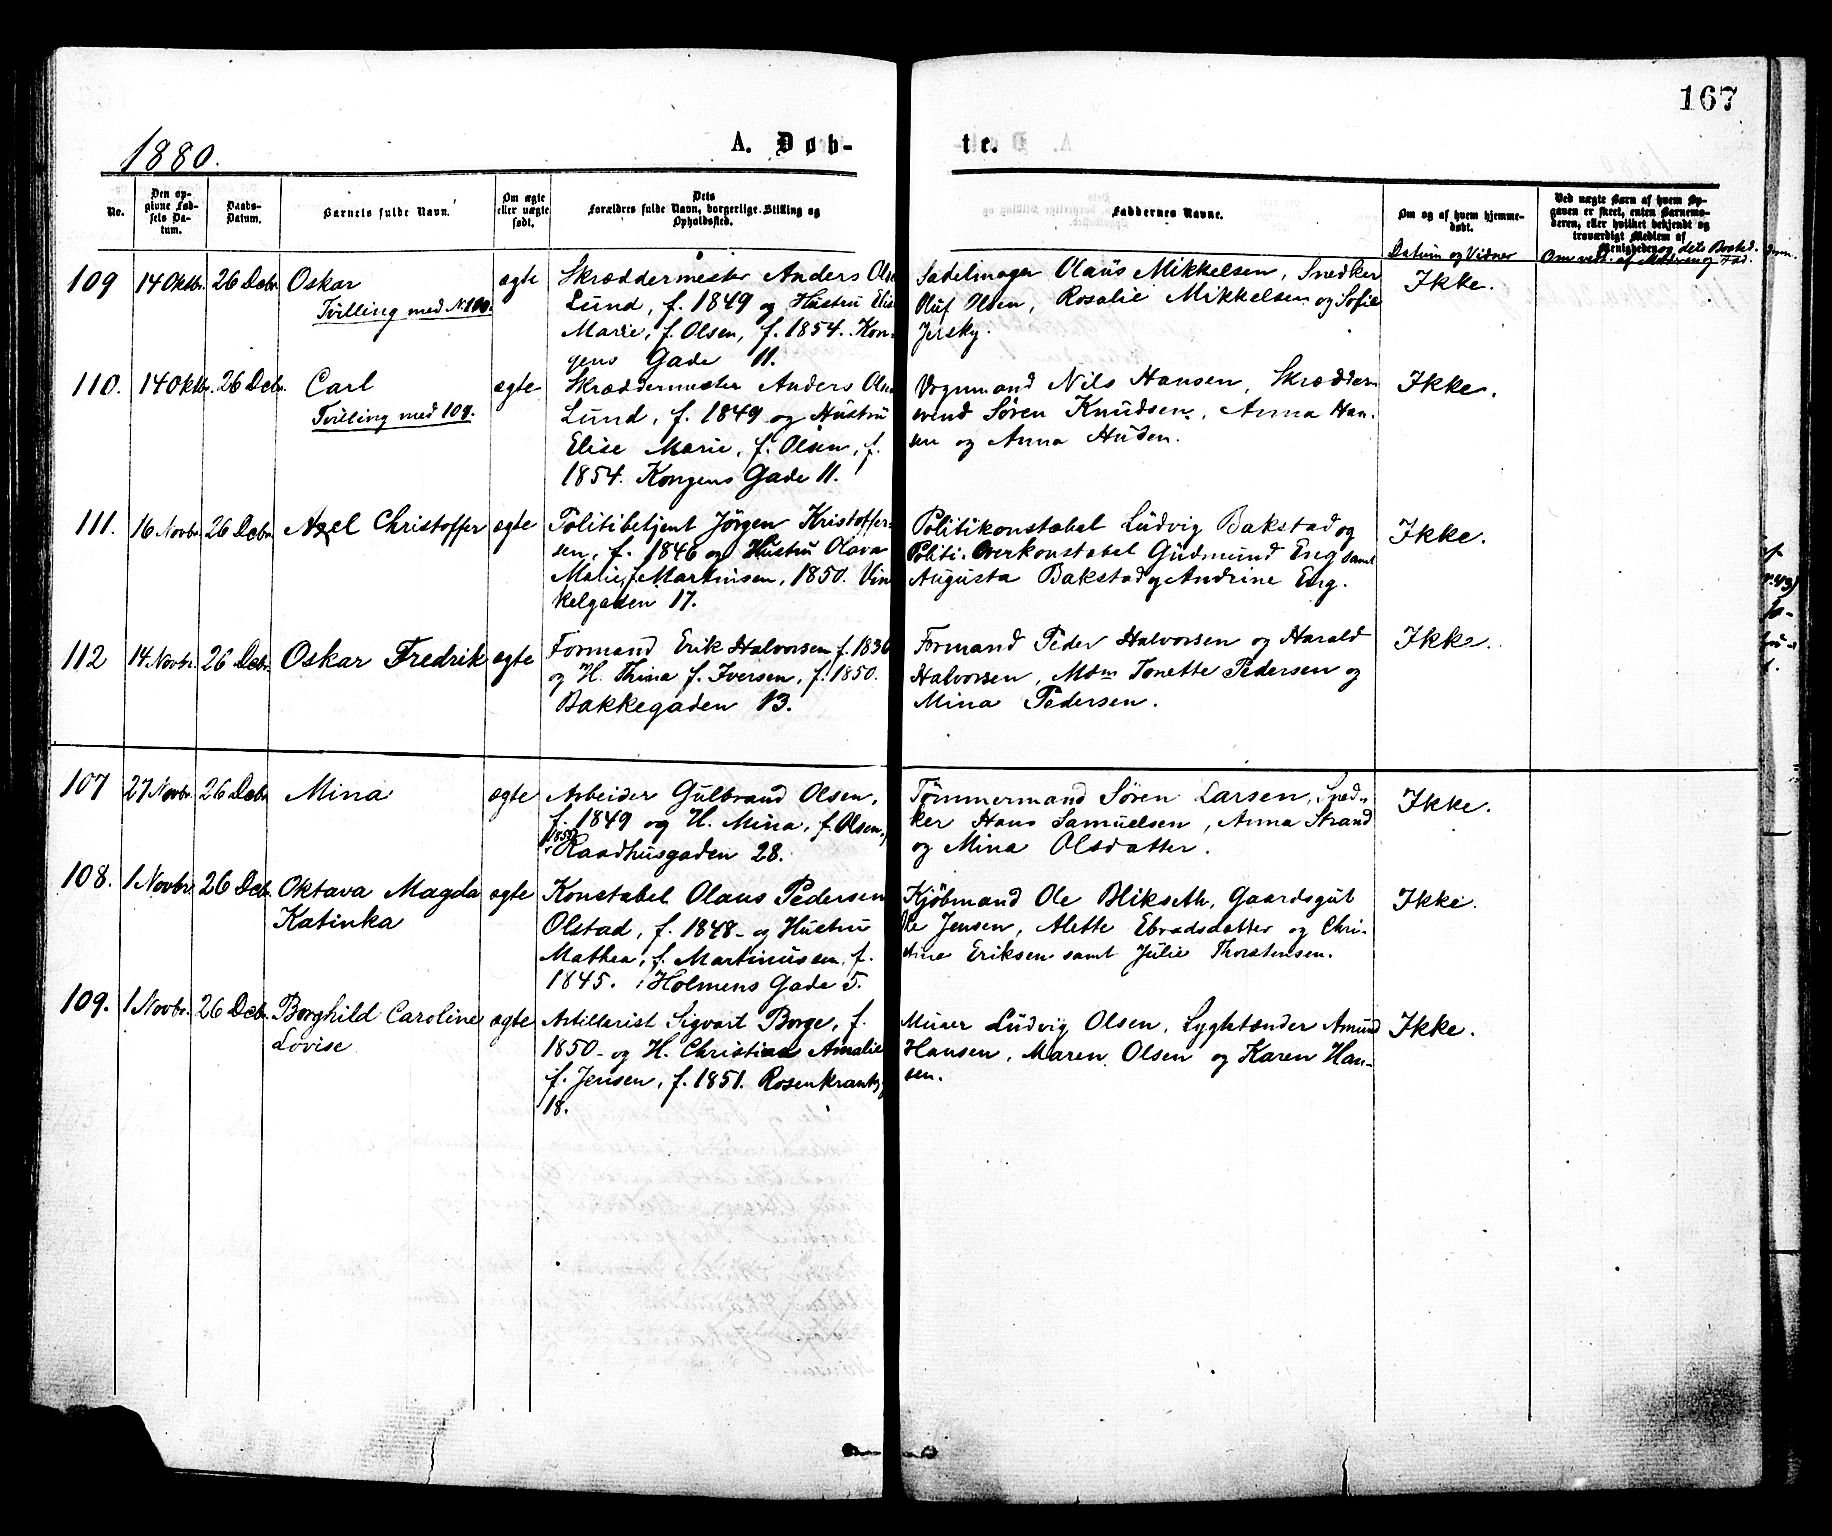 167
1880.
A. Døb-
te.
No.
Den op-
givne Fød-
sels Da-
tum.
Daabs-
Datum.
Barnets fulde Navn.
Om ægte
eller uægte
født.
Dets
Forældres fulde Navn, borgerlige Stilling og
Opholdssted.
Faddernes Navne.
Om og af hvem hjemme-
døbt.
Datum og Vidner
Ved uægte Barn af hvem Op-
gaven er skeet, enten Barnemo-
deren, eller hvilket bekjendt og
troværdigt Medlem af
Menigheden og dets Bosted.
109
14 Oktbr.
26 Decbr.
Oskar
Tvilling med N. 110.
ægte
Skræddermester Anders Olsen
Lund, f. 1849 og Hustru Elise
Marie, f. Olsen, f. 1854. Kon-
gens Gade 11.
Sadelmager Olaus Mikkelsen, Snedker
Oluf Olsen, Rosalie Mikkelsen og Sofie
Jersky.
Ikke.
110.
14 Oktbr.
26 Decbr.
Carl
Tvilling med 109.
ægte
Skræddermester Anders Olsen
Lund, f. 1849 og Hustru
Elise Marie, f. Olsen, f.
1854. Kongens Gade 11.
Vognmand Nils Hansen, Skrædder-
svend Søren Knudsen, Anna Han-
sen og Anna Huden.
Ikke.
111.
16 Novbr.
26 Decbr.
Axel Christoffer
ægte
Politibetjent Jörgen Kristoffer-
sen, f. 1846 og Hustru Olava
Marie, f. Martinsen, 1850. Vin-
kelgaden 17.
Politikonstabel Ludvig Bakstad og
Politi-Overkonstabel Gudmund Eng samt
Augusta Bakstad og Andrine Eng.
Ikke.
112
14 Novbr.
26 Decbr.
Oskar Fredrik
ægte
Formand Erik Halvorsen f. 1836
og H. Thina f. Iversen, f. 1850.
Bakkegaden 13.
Formand Peder Halvorsen og Harald
Halvorsen, Mdm Tonette Pedersen og
Mina Pedersen.
Ikke.
107
27 Novbr.
26 Decbr.
Mina
ægte
Arbeider Gulbrand Olsen,
f. 1849 og H. Mina, f. Olsen,
Raadhusgaden 28.
Tömmermand Sören Larsen, Sned-
ker Hans Samuelsen, Anna Strand
og Mina Olsdatter.
Ikke.
108.
1 Novbr.
26 Decbr.
Oktava Magda
Katinka
ægte
Konstabel Olaus Pedersen
Olstad, f. 1848 og Hustru
Mathea, f. Martinusen, f.
1845. Holmens Gade 5.
Kjöbmand Ole Blikseth, Gaardsgut
Ole Jensen, Alette Ebradsdatter og Chri-
stine Eriksen samt Julie Thorstensen.
Ikke.
109.
1 Novbr.
26 Decbr.
Borghild Caroline
Lovise
ægte
Artillerist Sigvart Borge, f.
1850 og H. Christiane Amalie
f. Jensen, f. 1851. Rosenkrantzg
18.
Murer Ludvig Olsen, Lygtetænder Amund
Hansen, Maren Olsen og Karen Han-
sen.
Ikke.